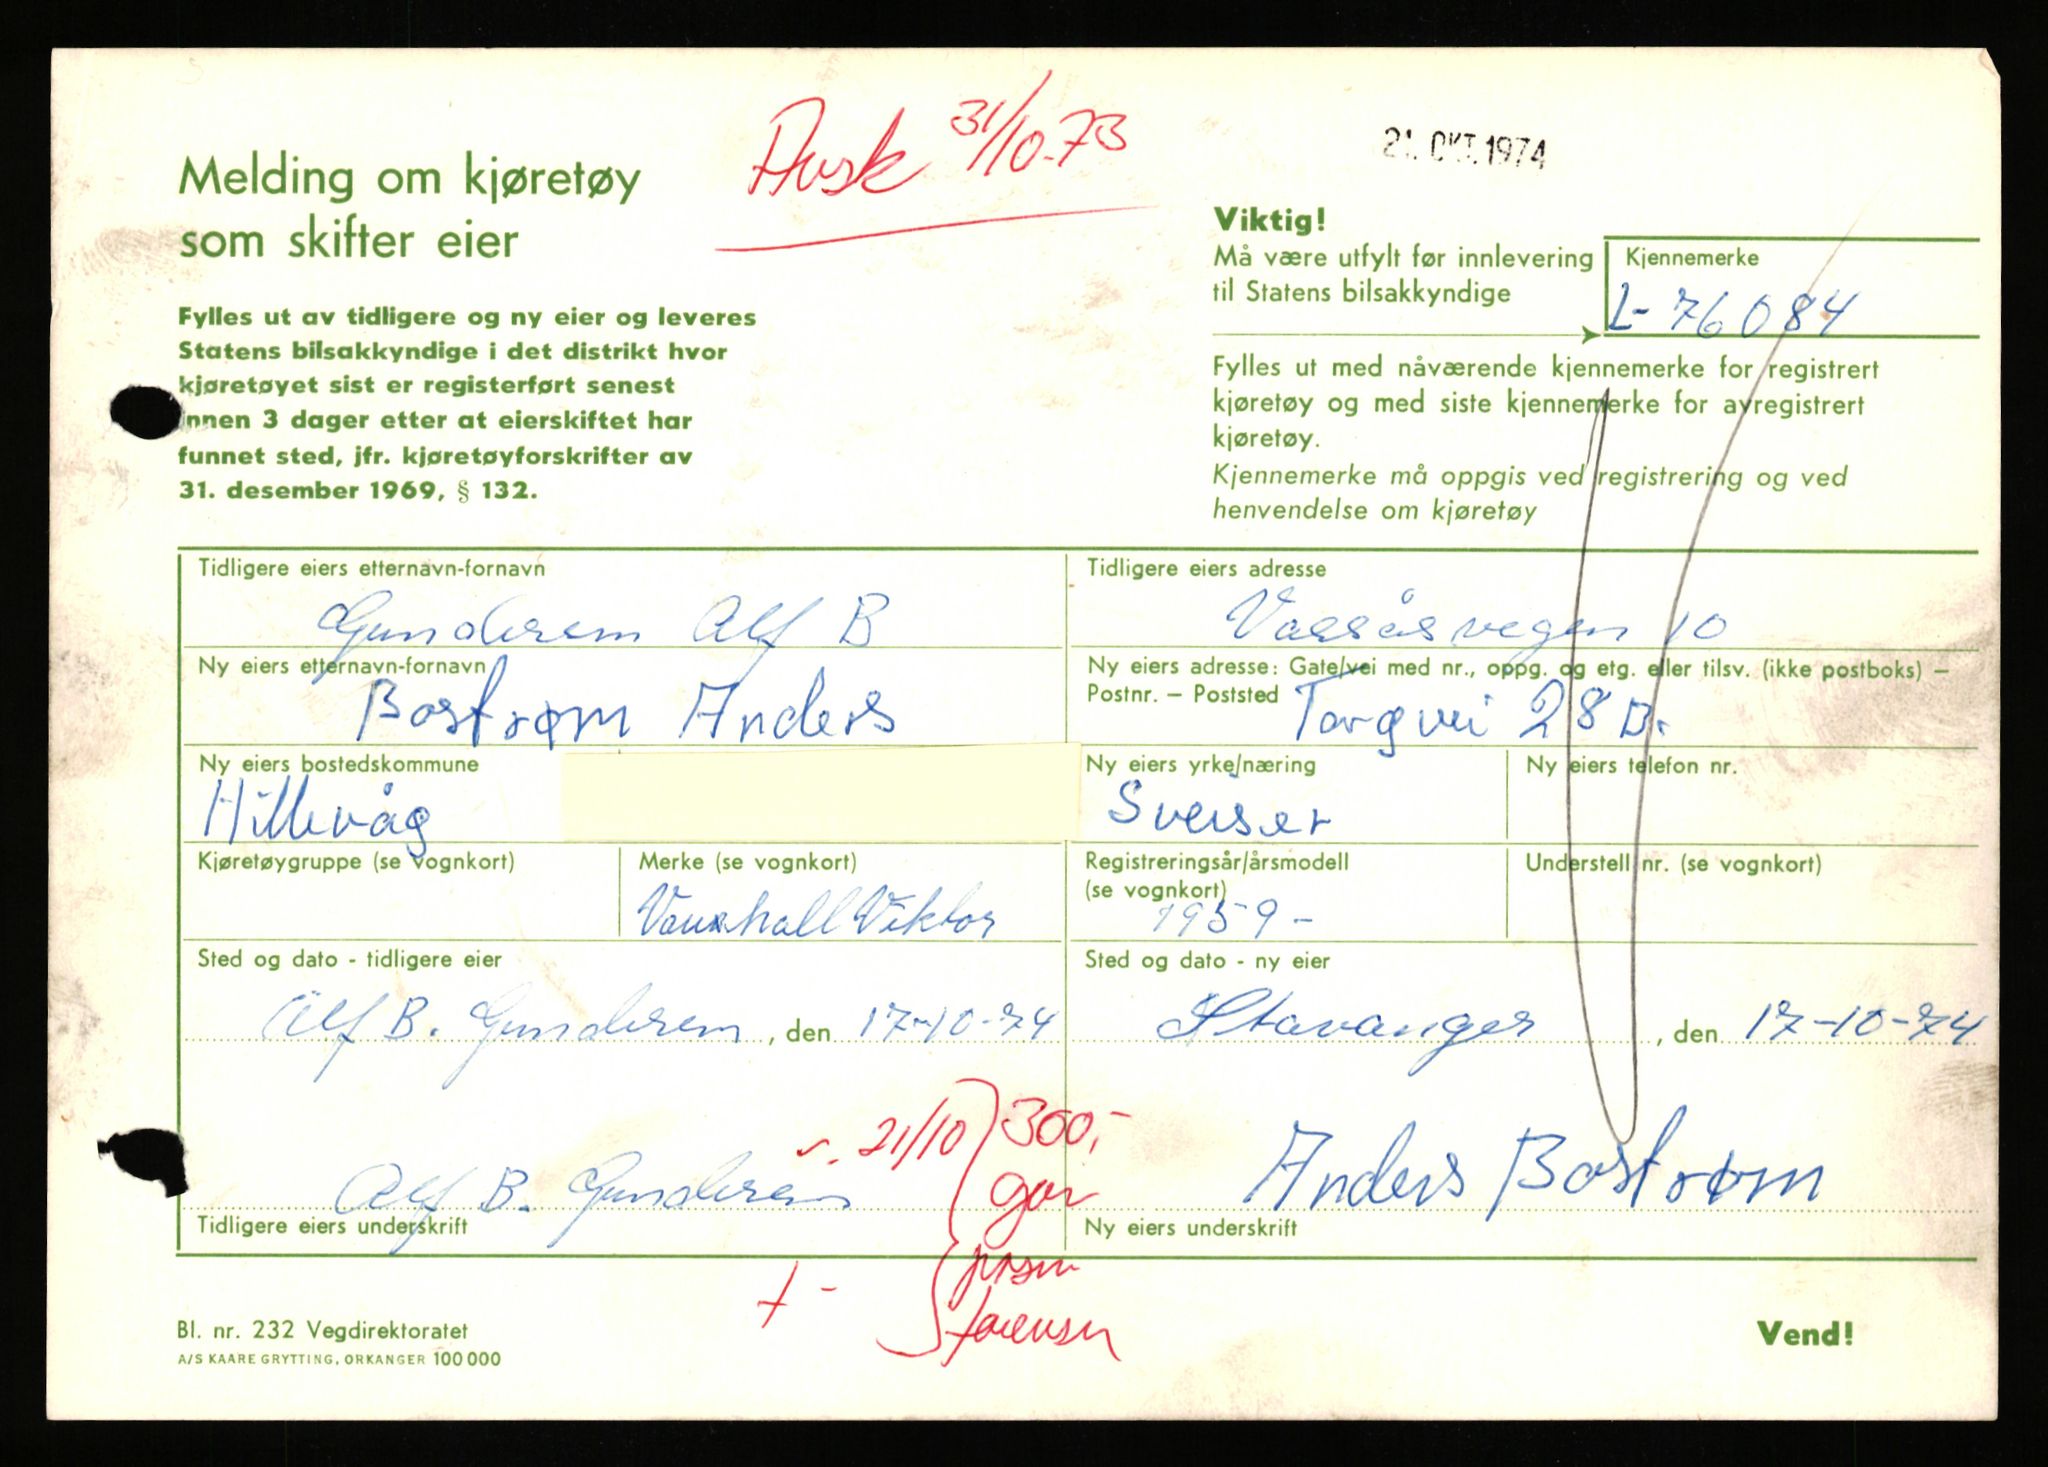 Avsk 31/10-73
21. OKT. 1974
Melding om kjøretøy
som skifter eier
Fylles ut av tidligere og ny eier og leveres
Statens bilsakkyndige i det distrikt hvor
kjøretøyet sist er registerført senest
innen 3 dager etter at eierskiftet har
funnet sted, jfr. kjøretøyforskrifter av
31. desember 1969, § 132.
Viktig!
Må være utfylt før innlevering
til Statens bilsakkyndige
Kjennemerke
L-76084
Fylles ut med nåværende kjennemerke for registrert
kjøretøy og med siste kjennemerke for avregistrert
kjøretøy.
Kjennemerke må oppgis ved registrering og ved
henvendelse om kjøretøy
Tidligere eiers etternavn-fornavn
Gundersen Alf B
Tidligere eiers adresse
Vassåsvegen 10
Ny eiers etternavn-fornavn
Bostrøm Anders
Ny eiers adresse: Gate/vei med nr., oppg. og etg. eller tilsv. (ikke postboks) –
Postnr. – Poststed Torgvei 28 B.
Ny eiers bostedskommune
Hillevåg
Ny eiers yrke/næring
Sveiser
Ny eiers telefon nr.
Kjøretøygruppe (se vognkort)
Merke (se vognkort)
Vauxhall Viktor
Registreringsår/årsmodell
(se vognkort)
1959-
Understell nr. (se vognkort)
Sted og dato - tidligere eier
Alf B. Gundersen, den 17-10-74
Sted og dato - ny eier
Stavanger, den 17-10-74
21/10 300,-
Alf B. Gundersen
Tidligere eiers underskrift
Anders Bostrøm
Ny eiers underskrift
Bl. nr. 232 Vegdirektoratet
A/S KAARE GRYTTING, ORKANGER 100 000
Vend!